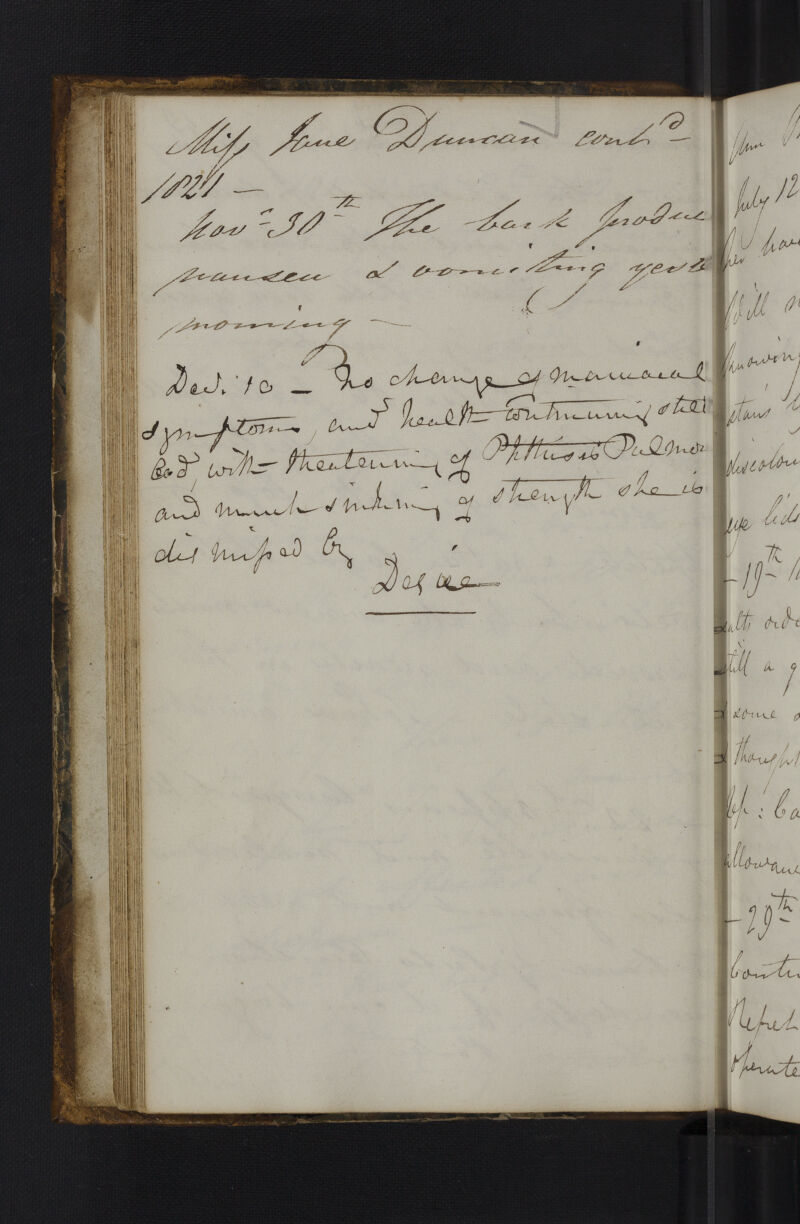 Miss Jane Duncan cont.d
1821 —
Nov.r 30th The bark produc
nausea & vomiting yeste
morning —
Dec.r 10 — No change of maniacal
symptoms, and health continuing still
bad, with theatening of Phthisis Pulmon
and much sinking of strength she is
dismissed by
Desire
Ann
July 12
her have
Will n
knowing
stains
discolou
eye lids
— 19th
salts orde
still a g
& some
& thought
Rep: Ca
allowance
— 29th
Contin
Repet
operate